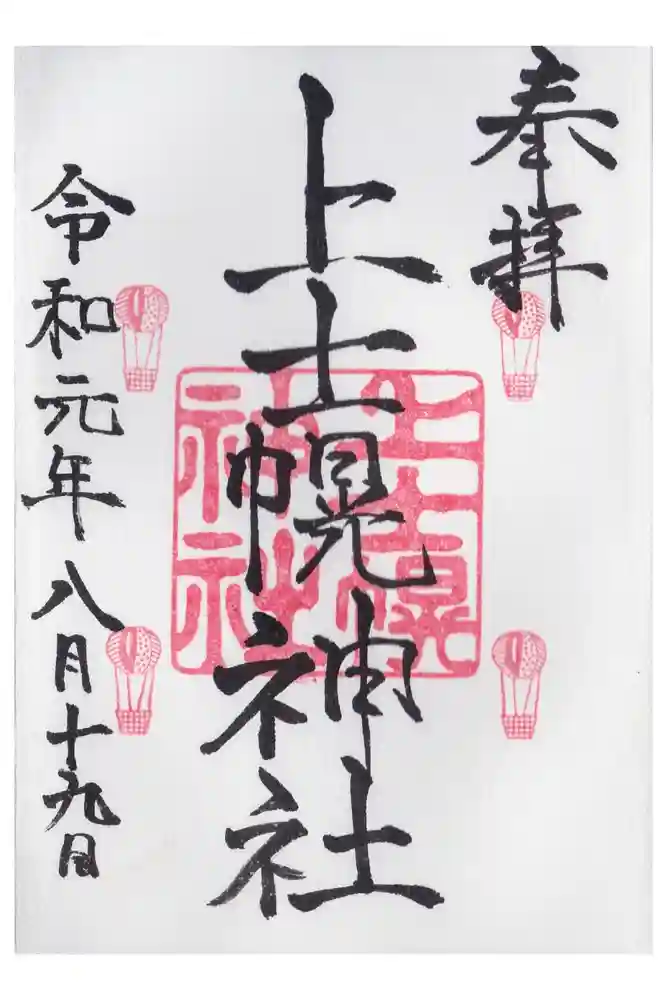 奉拝
上士幌神社
上士幌
神社
令和元年八月十九日